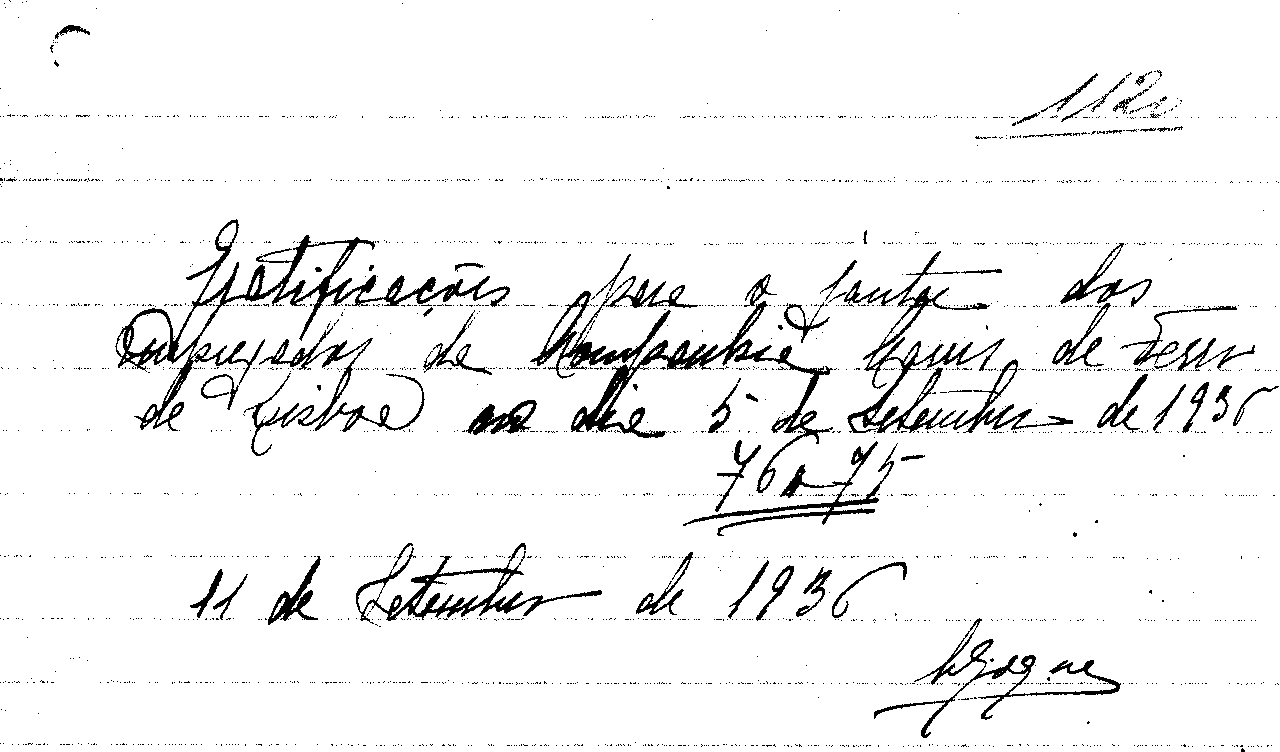 112
Gratificações para o jantar dos
Empregados da Companhia Carris de Ferro
de Lisboa no dia 5 de Setembro de 1936
76$75
11 de Setembro de 1936